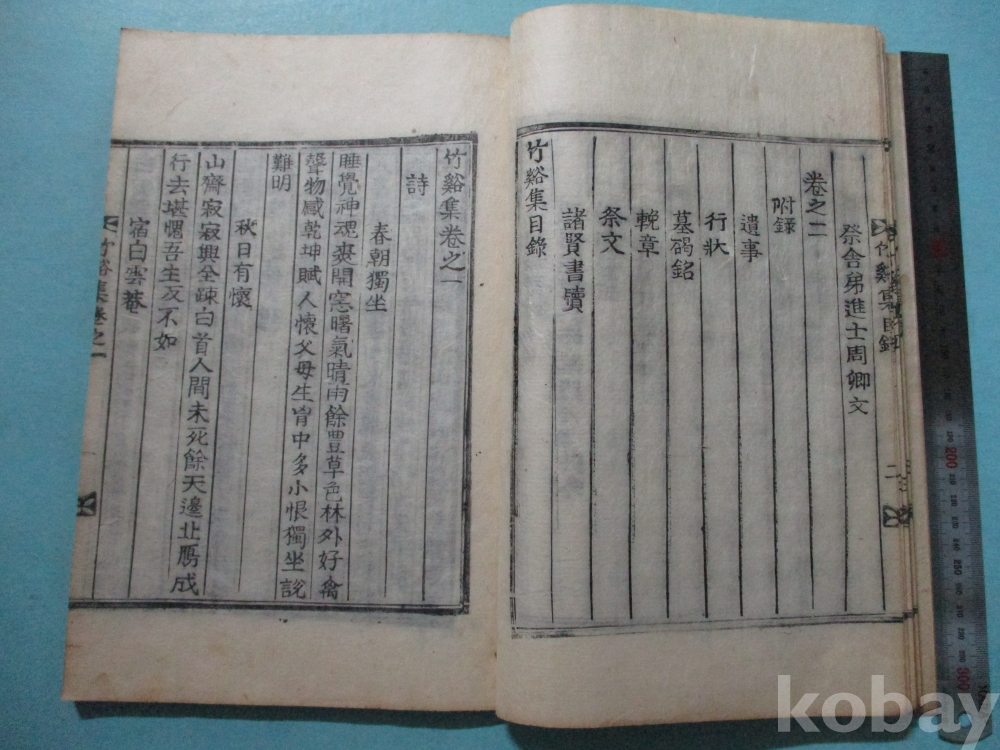 竹谿集目錄
二
祭舍弟進士周卿文
卷之二
附録
遺事
行狀
墓碣銘
輓章
祭文
諸賢書牘
竹谿集目錄
竹谿集卷之一
詩
春朝獨坐
睡覺神魂爽開窓曙氣晴雨餘豊草色林外好禽
聲物感乾坤賦人懷父母生胷中多小恨獨坐說
難明
秋日有懷
山齋寂寂興全疎白首人間未死餘天邊北鴈成
行去堪愧吾生反不如
宿白雲菴
竹谿集卷之一
200
250
300
kobay